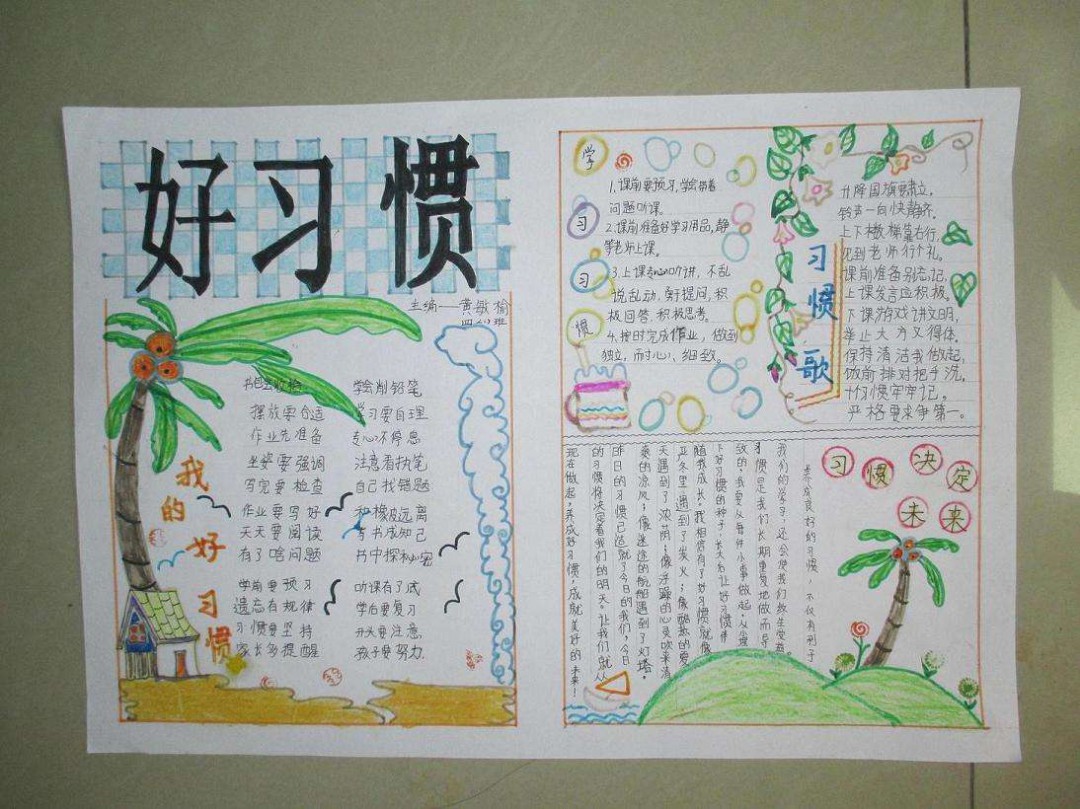 好习惯
主编——黄敏榆
我的好习惯
学会削铅笔
摆放要合适 学习要自理
作业先准备 专心不停息
坐姿要强调 注意看执笔
写完要检查 自己找错题
作业要写好 和橡皮远离
天天要阅读 写书成知己
有了啥问题 书中探秘密
学前要预习 听课有了底
遗忘有规律 学后要复习
习惯要坚持 开头要注意
家长多提醒 孩子要努力
学习习惯
1.课前要预习,学会带着
问题听课。
2.课前准备好学习用品,静
等老师上课。
3.上课专心听讲,不乱
说乱动,勇于提问,积
极回答,积极思考。
4.按时完成作业,做到
独立,耐心,细致。
习惯歌
升降国旗要肃立,
铃声一向快静齐。
上下楼梯靠右行,
见到老师行个礼。
课前准备别忘记,
上课发言应积极。
下课游戏讲文明,
举止大方又得体。
保持清洁我做起,
饭前排对把手洗。
好习惯牢牢记,
严格要求争第一。
习惯决定未来
养成良好的习惯,不仅有利于
我们的学习,还会使我们终生受益。
习惯是我们长期重复地做而导
致的。我要从每件小事做起,从小种
下好习惯的种子,长大后让好习惯伴
随我成长。我相信有了好习惯就像
严冬里遇到了炭火;像酷热的夏
天遇到了浓荫;像浮躁的心灵吹来清
爽的凉风;像迷途的航船遇到了灯塔。
昨日的习惯已造就了今日的我们,今日
的习惯将决定着我们的明天。让我们就从
现在做起,养成好习惯,成就美好的未来!